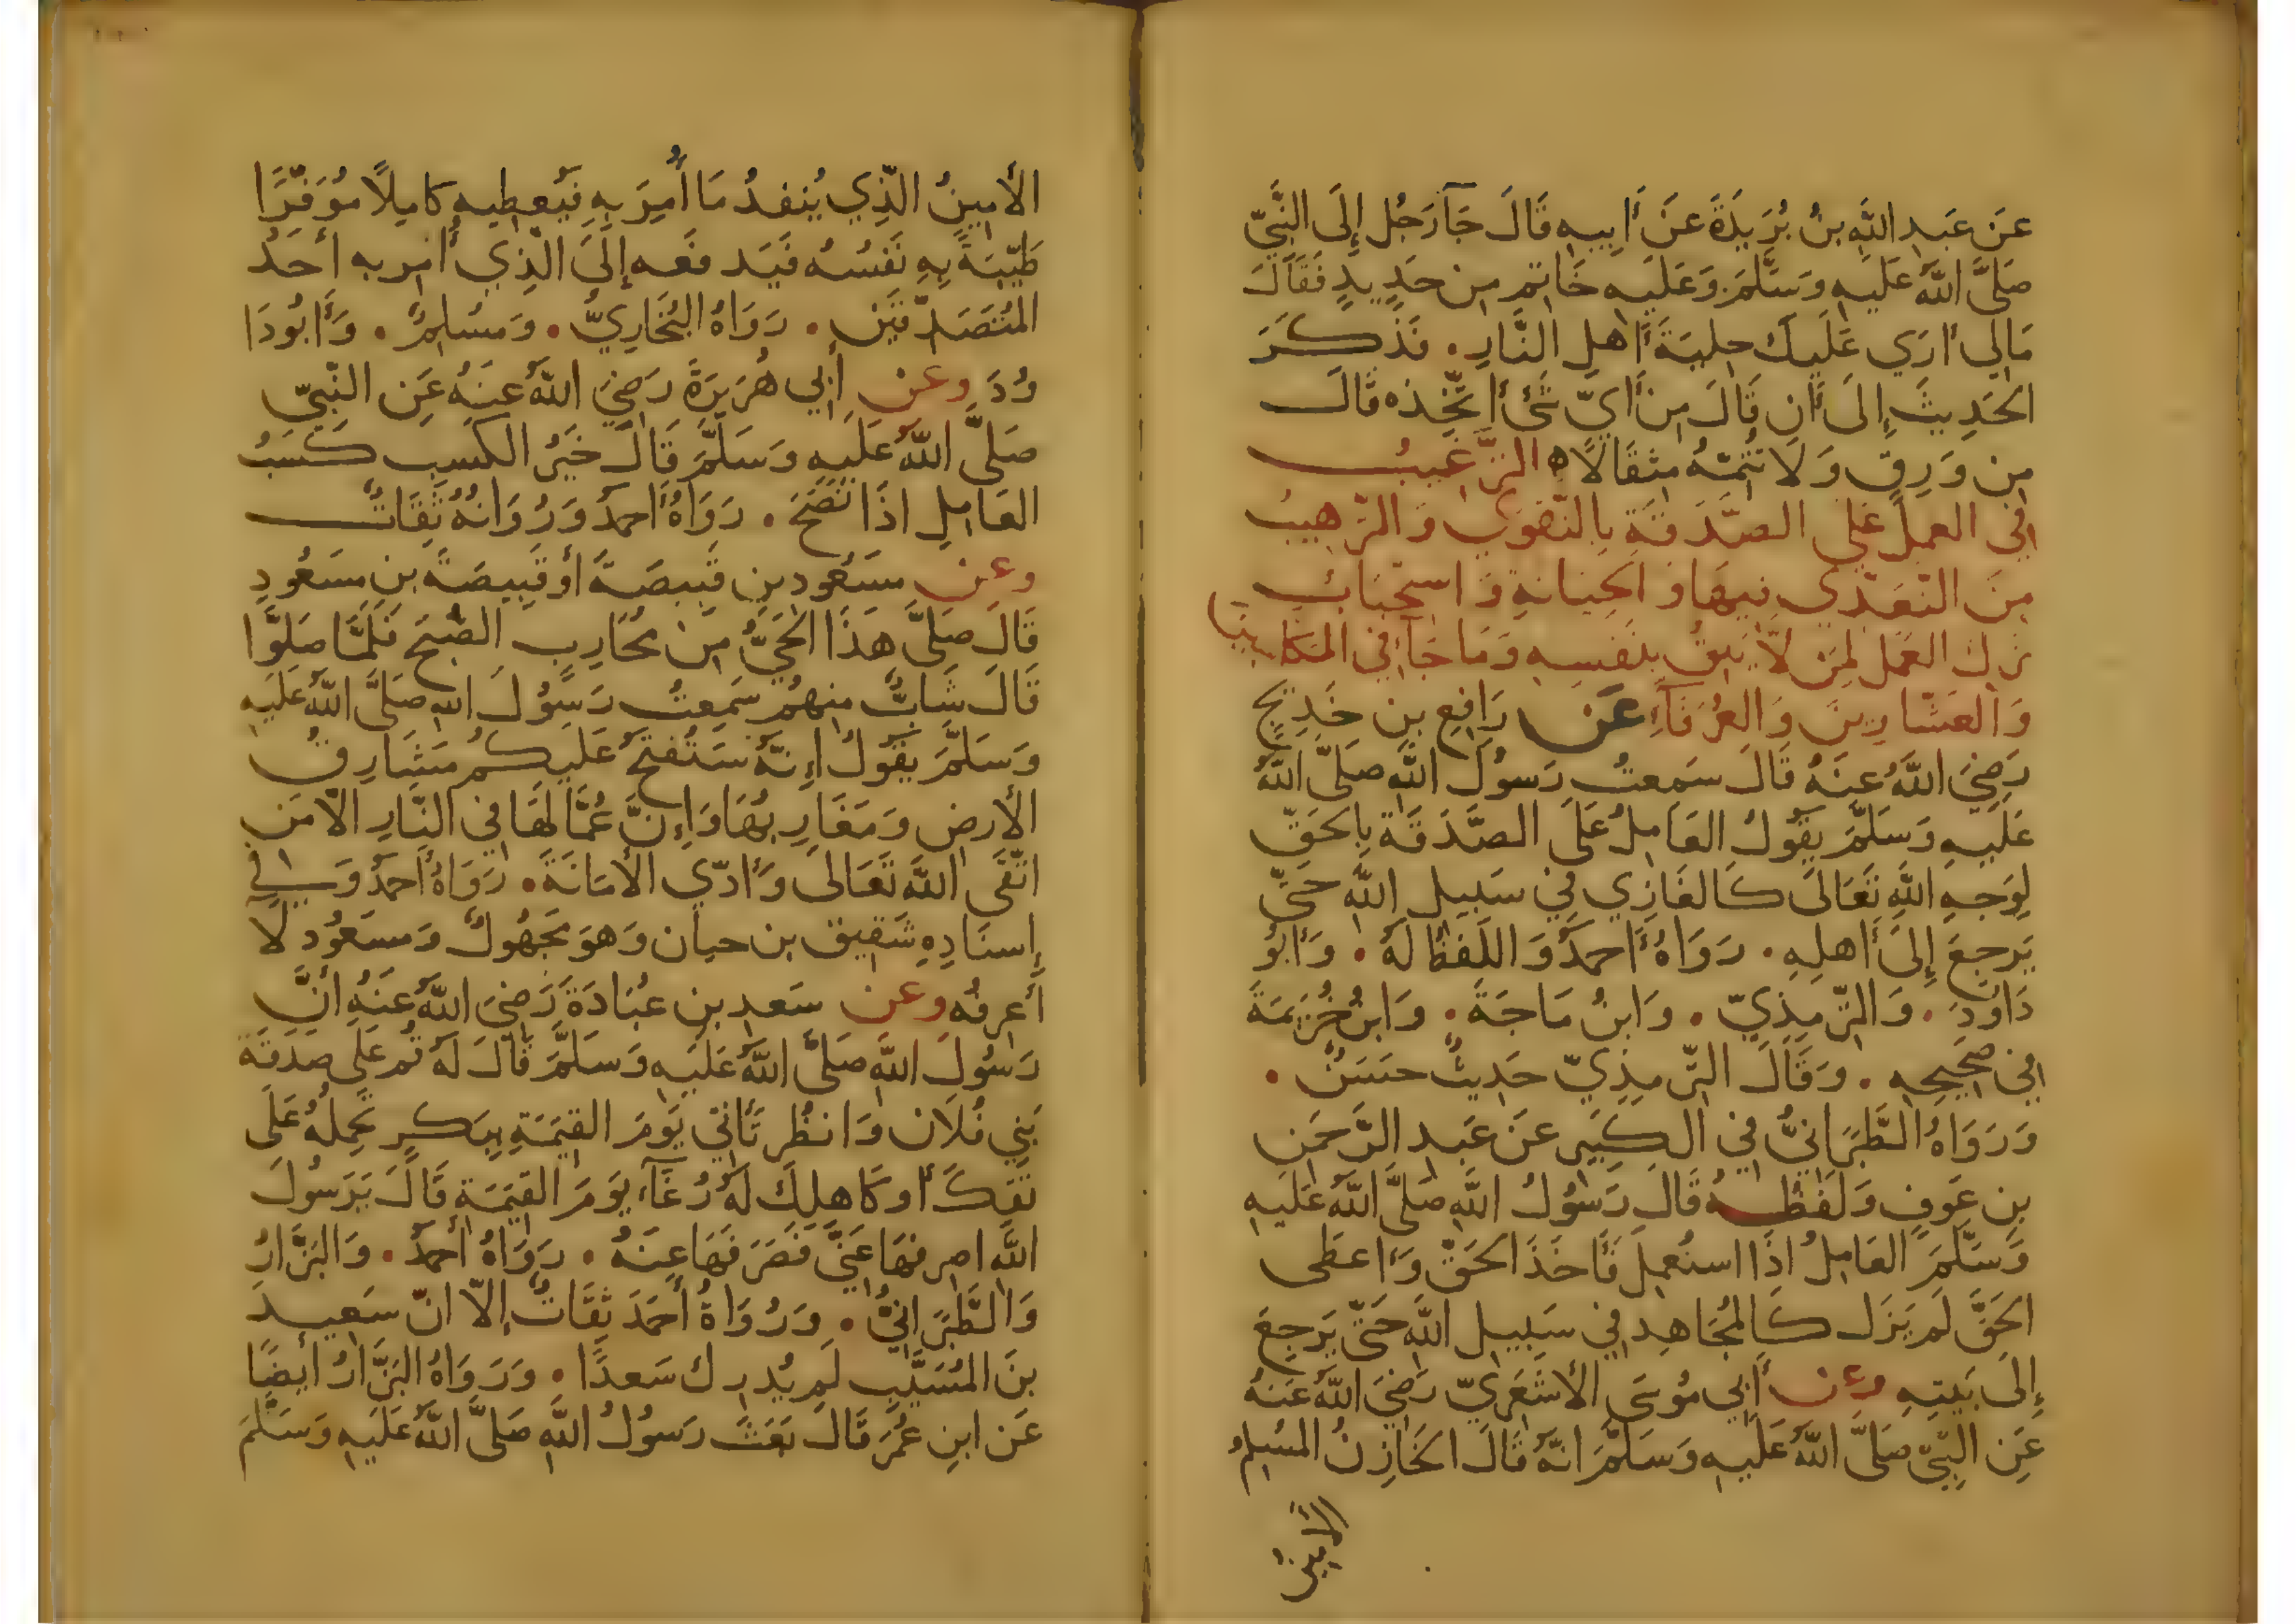 عَن عَبدِ اللَّهِ بنُ بُرَيدَةَ عَن أَبِيهِ قَالَ جَآ رَجُل إِلَى النَّبِيِّ
صَلَّى اللَّهُ عَلَيهِ وَسَلَّمَ وَعَلَيهِ خَاتِم مِن حَدِيدٍ فَقَالَ
مَالِي أَرَي عَلَيكَ حِليَةَ أَهلِ النَّارِ . فَذَكَرَ
الحَدِيثَ إِلَى أَن قَالَ مِن أَيِّ شَئ أَتَّخِذه قَالَ
مِن وَرِقٍ وَلَا تُتِمَّهُ مِثقَالًا ه التَّرغِيبُ
فِي العَمَلِ عَلَى الصَّدَقَةِ بِالتَّقوَي وَالتَّرهِيبُ
مِنَ التَّعَدِّي فِيهَا وَ الخِيَانَةِ وَاستِحبَابُ
تَركِ العَمَلِ لِمَن لَا يَثِقُ بِنَفسِهِ وَمَا جَآءَ فِي المَكَّاسِينَ
وَالعَشَّارِينَ وَالعُرَفَآءِ عَن رَافِعِ بنِ خَدِيجٍ
رَضِيَ اللَّهُ عَنهُ قَالَ سَمِعتُ رَسُولَ اللَّهِ صَلَّى اللَّهُ
عَلَيهِ وَسَلَّمَ يَقُولُ العَامِلُ عَلَى الصَّدَقَةِ بِالحَقِّ
لِوَجهِ اللَّهِ تَعَالَى كَالغَازِي فِي سَبِيلِ اللَّهِ حَتَّى
يَرجِعَ إِلَى أَهلِهِ . رَوَاهُ أَحمَدُ وَاللَّفظُ لَهُ . وَأَبُو
دَاوُدَ . وَالتِّرمِذِيّ . وَابنُ مَاجَةَ . وَابنُ خُزَيمَةَ
فِي صَحِيحِهِ . وَقَالَ التِّرمِذِيّ حَدِيثٌ حَسَنٌ .
وَرَوَاهُ الطَّبَرَانِيُّ فِي الكَبِيرِ عَن عَبدِ الرَّحمَنِ
بنِ عَوفٍ وَلَفظُهُ قَالَ رَسُولُ اللَّهِ صَلَّى اللَّهُ عَلَيهِ
وَسَلَّمَ العَامِلُ إِذَا استُعمِلَ فَأَخَذَ الحَقَّ وَأَعطَى
الحَقَّ لَم يَزَل كَالمُجَاهِدِ فِي سَبِيلِ اللَّهِ حَتَّى يَرجِعَ
إِلَى بَيتِهِ وعن أَبِي مُوسَى الأَشعَرِيّ رَضِيَ اللَّهُ عَنهُ
عَنِ النَّبِيِّ صَلَّى اللَّهُ عَلَيهِ وَسَلَّمَ انَّهُ قَالَ الخَازِنُ المُسلِمُ
الأَمِينُ
الأَمِينُ الَّذِي يُنفِذُ مَا أُمِرَ بِهِ فَيُعطِيهِ كَامِلًا مُوَفَّرًا
طَيِّبَةً بِهِ نَفسُهُ فَيَدفَعه إِلَى الَّذِي أُمِر به أَحَدُ
المُتَصَدِّقَينِ . رَوَاهُ البُخَارِيُّ . وَمُسلِمٌ . وَأَبُو دَا
وُدَ وعن أَبِي هُرَيرَةَ رَضِيَ اللَّهُ عَنهُ عَنِ النَّبِيِّ
صَلَّى اللَّهُ عَلَيهِ وَسَلَّمَ قَالَ خَيرُ الكَسبِ كَسبُ
العَامِلِ اذَا نَصَحَ . رَوَاهُ أَحمَدُ وَرُوَاتُهُ ثِقَاتٌ
وعن مَسعُودِ بنِ قَبِيصَةَ أَو قَبِيصَةَ بنِ مَسعُودٍ
قَالَ صَلَّى هَذَا الحَيُّ مِن مُحَارِبِ الصُّبحَ فَلَمَّا صَلَّوا
قَالَ شَابٌّ مِنهُم سَمِعتُ رَسُولَ اللهِ صَلَّى اللَّهُ عَلَيهِ
وَسَلَّمَ يَقُولُ إِنَّهُ سَتُفتَحُ عَلَيكُم مَشَارِقُ
الأَرضِ وَمَغَارِبُهَا وَإِنَّ عُمَّالَهَا فِي النَّارِ الَّا مَنِ
اتَّقَى اللَّهَ تَعَالَى وَأَدّي الأَمَانَةَ . رَوَاهُ أَحمَدُ وَفِي
إِسنَادِهِ شَقِيق بن حيان وَهوَ مَجهُولٌ وَمسعُودٍ لَا
أَعرِفُه وعن سَعدِ بنِ عُبَادَةَ رَضِيَ اللَّهُ عَنهُ أَنَّ
رَسُولَ اللَّهِ صَلَّى اللَّهُ عَلَيهِ وَسَلَّمَ قَالَ لَهُ قُم عَلَى صَدَقَةِ
بَنِي فُلَان وَانظُر تَأتِي يَومَ القِيَمَةِ بِبَكرٍ تَحمِلُهُ عَلَى
عَاتِقِكَ أَو كَاهِلِكَ لَهُ رُغَآءٌ يَومَ القِيَمَةِ قَالَ يَرَسُولَ
اللَّهِ اصرِفهَا عَنِّي فَصَرَفَهَا عَنهُ . رَوَاهُ أَحمَدُ . وَالبَزَّارُ
وَالطَّبَرَانِيُّ . وَرُوَاةُ أَحمَدَ ثِقَاتٌ إِلَّا انَّ سَعِيدَ
بنَ المُسَيَّبِ لَم يُدرِك سَعدًا . وَرَوَاهُ البَزَّارُ أَيضًا
عَنِ ابنِ عُمَرَ قَالَ بَعَثَ رَسُولُ اللَّهِ صَلَّى اللَّهُ عَلَيهِ وَسَلَّمَ